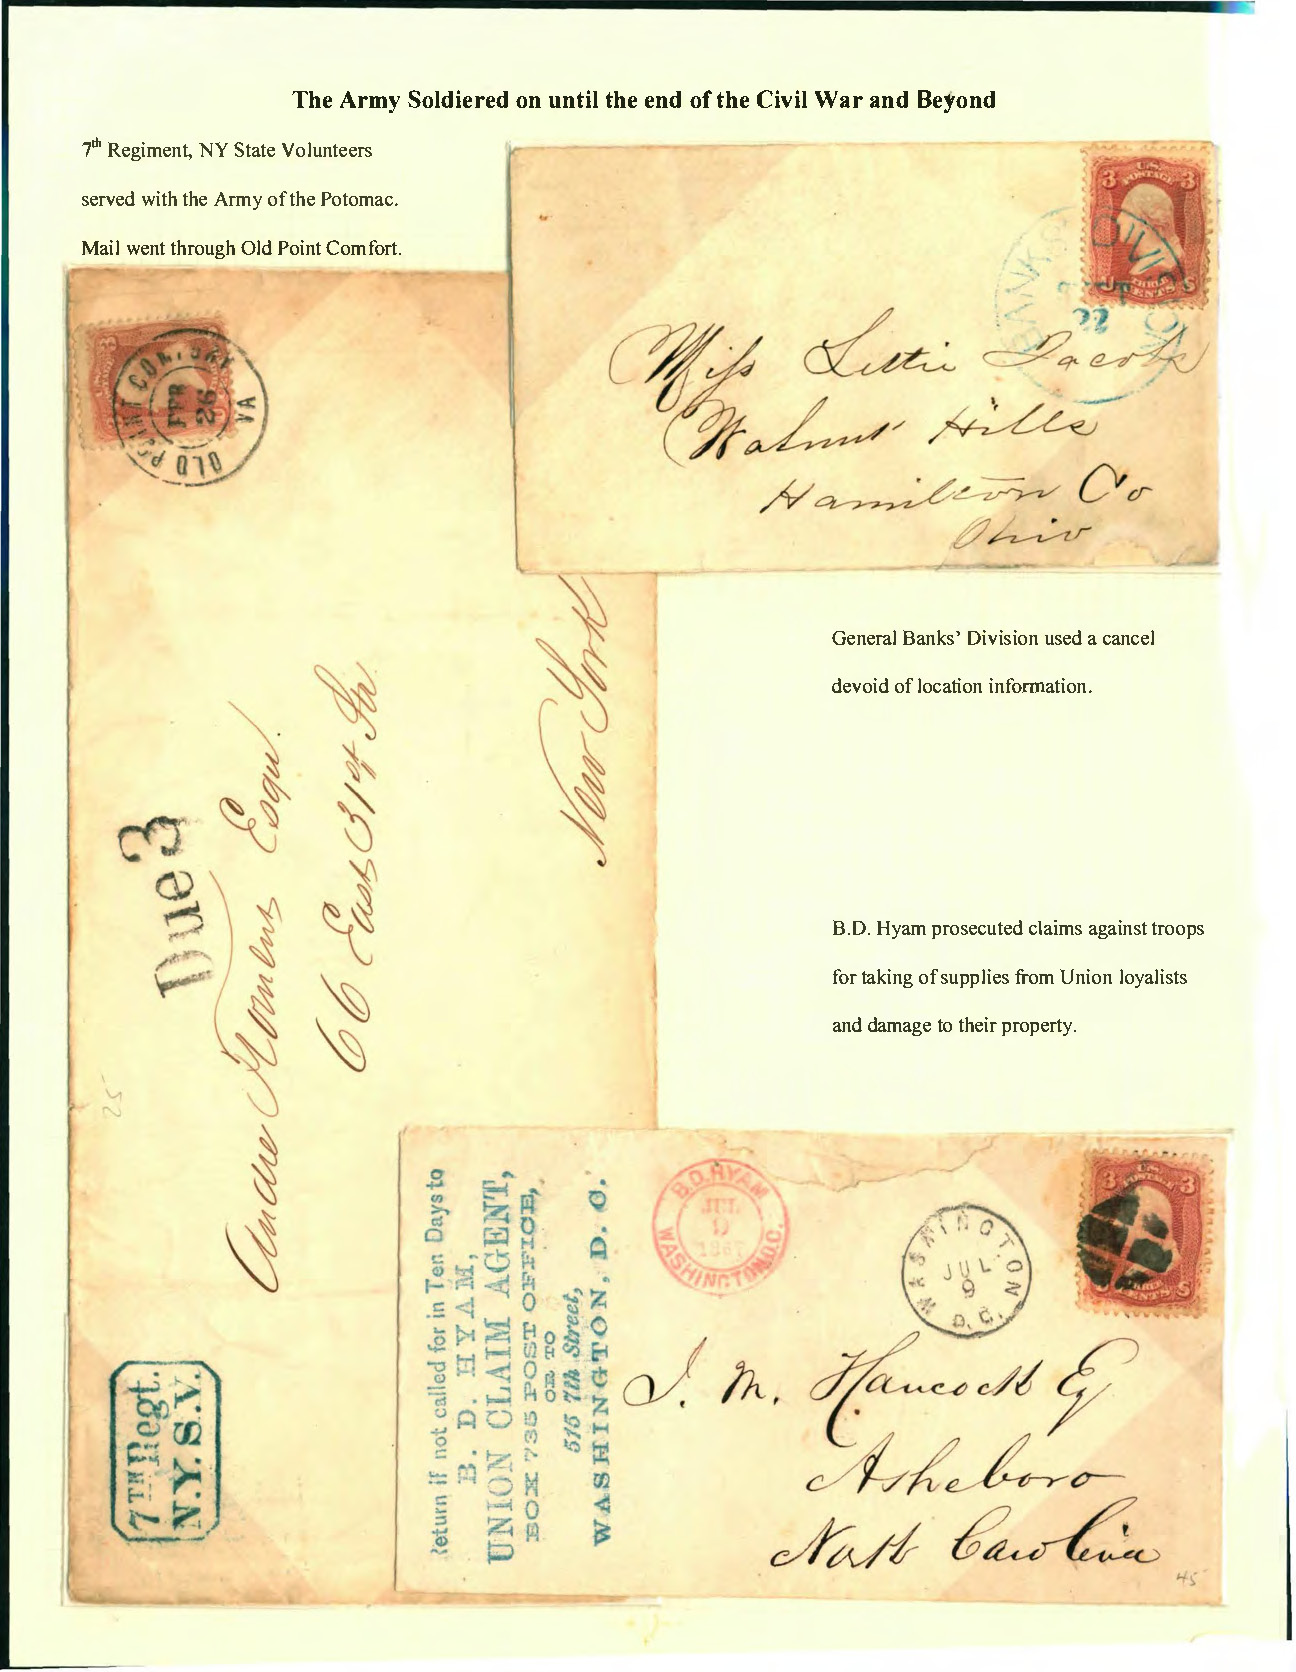 The Army Soldiered on until the end of the Civil War and Beyond
7th Regiment, NY State Volunteers
served with the Army of the Potomac.
Mail went through Old Point Comfort.
U.S.
POSTAGE
3 3
THREE
CENTS
BANKS' DIVISION
22
Miss Lettie Jacobs
Walnut Hills
Hamilton Co
Ohio
3
OLD POINT COMFORT VA
FEB
26
Due 3
Esqr.
66 East 31st St.
New York
25
7TH Regt.
N.Y.S.V.
General Banks' Division used a cancel
devoid of location information.
B.D. Hyam prosecuted claims against troops
for taking of supplies from Union loyalists
and damage to their property.
Return if not called for in Ten Days to
B. D. HYAM,
UNION CLAIM AGENT,
BOX 735 POST OFFICE,
OR TO
515 7th Street,
WASHINGTON, D. C.
B.D. HYAM
JUL
9
WASHINGTON D.C.
WASHINGTON
JUL
9
D. C.
U.S.
POSTAGE
3 3
THREE
CENTS
J. M. Hancock Eq
Asheboro
North Carolina
45